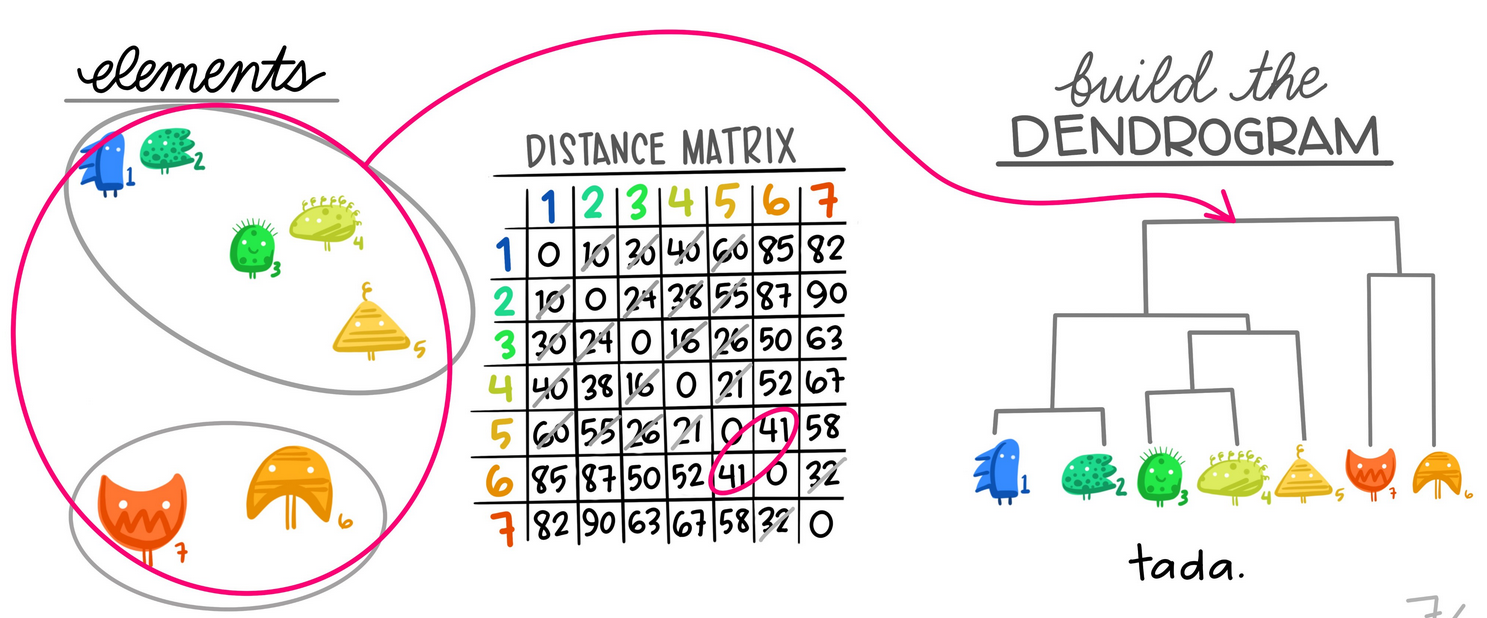 elements
1
2
3
4
5
6
7
DISTANCE MATRIX
1 2 3 4 5 6 7
1 0 10 30 40 60 85 82
2 10 0 24 38 55 87 90
3 30 24 0 16 26 50 63
4 40 38 16 0 21 52 67
5 60 55 26 21 0 41 58
6 85 87 50 52 41 0 32
7 82 90 63 67 58 32 0
build the
DENDROGRAM
1 2 3 4 5 7 6
tada.